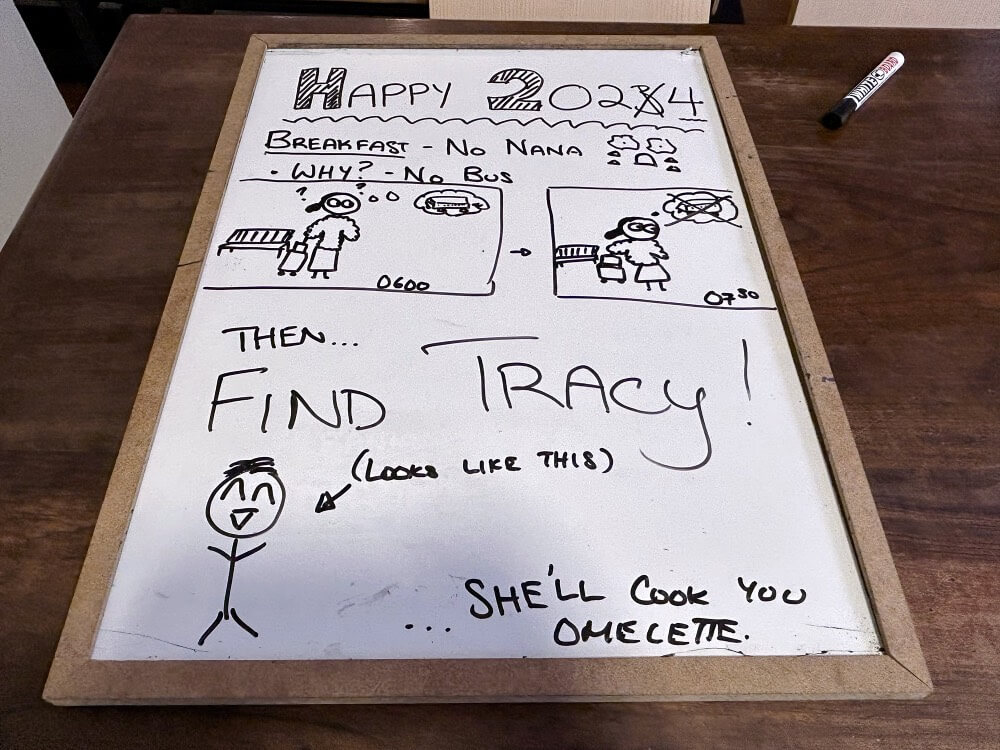 HAPPY 20234
BREAKFAST - NO NANA
• WHY? - NO BUS
? ?
0600
→
0730
THEN...
FIND TRACY!
(LOOKS LIKE THIS)
... SHE'LL COOK YOU
OMELETTE.
WHITEBOARD